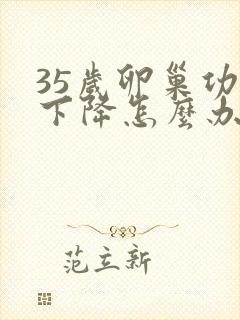 35歲卵巢功
下降怎麼办
范立新